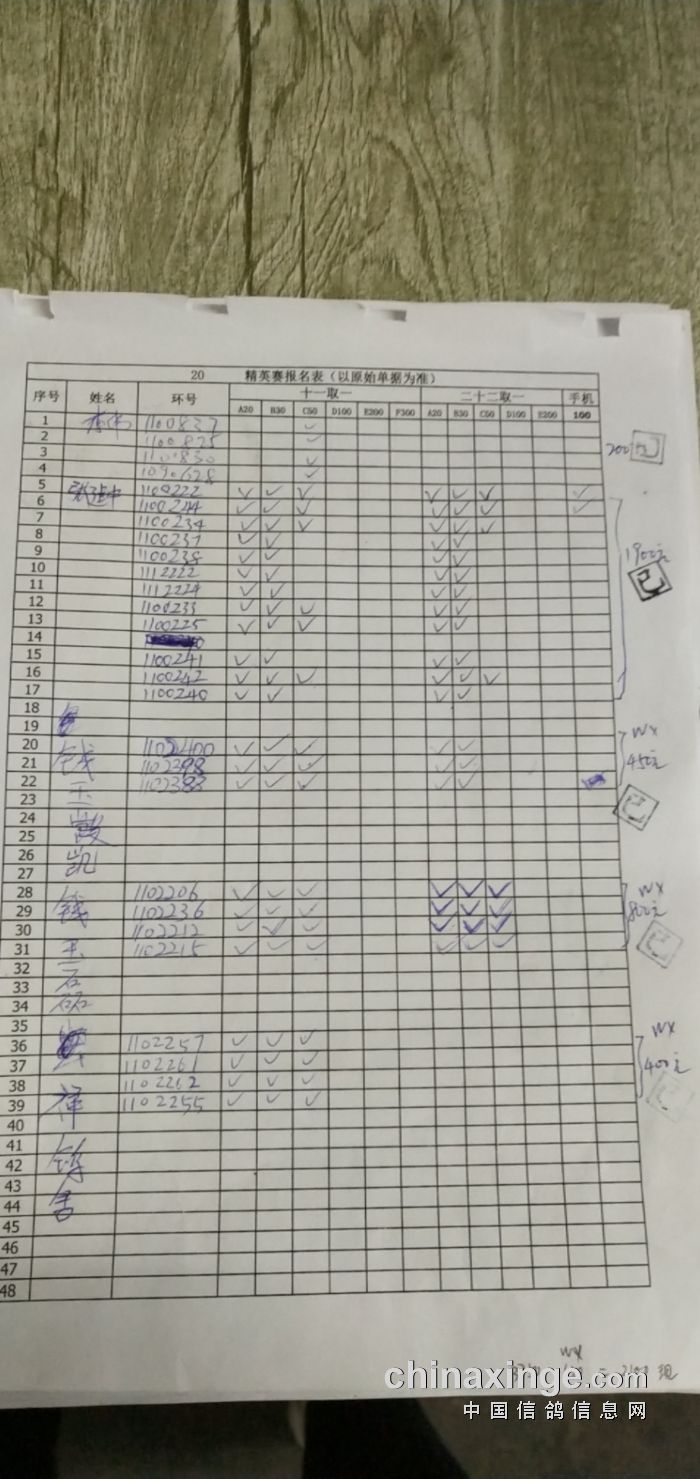 20 精英赛报名表（以原始单据为准）
序号 姓名 环号 十一取一 二十二取一 手机
A20 B30 C50 D100 E200 F300 A20 B30 C50 D100 E200 100
1 1100837 ✓
2 1100825 ✓
3 1100830 ✓
4 1090628 ✓
200元
5 张建中 1100222 ✓ ✓ ✓ ✓ ✓ ✓ ✓
6 1100244 ✓ ✓ ✓ ✓ ✓ ✓ ✓
7 1100234 ✓ ✓ ✓ ✓ ✓ ✓
8 1100237 ✓ ✓ ✓ ✓
9 1100238 ✓ ✓ ✓ ✓
1900元
已
10 1112222 ✓ ✓ ✓ ✓
11 1112224 ✓ ✓ ✓ ✓
12 1100233 ✓ ✓ ✓ ✓ ✓
13 1100225 ✓ ✓ ✓ ✓ ✓
14
15 1100241 ✓ ✓ ✓ ✓
16 1100242 ✓ ✓ ✓ ✓ ✓ ✓
17 1100240 ✓ ✓ ✓ ✓
18
19
20 钱 1102400 ✓ ✓ ✓ ✓ ✓
21 1102398 ✓ ✓ ✓ ✓ ✓
22 王 1102383 ✓ ✓ ✓ ✓ ✓
WX
450元
已
23
24
25
26 凯
27
28 1102206 ✓ ✓ ✓ ✓ ✓ ✓
29 钱 1102236 ✓ ✓ ✓ ✓ ✓ ✓
30 1102212 ✓ ✓ ✓ ✓ ✓ ✓
31 王 1102215 ✓ ✓ ✓ ✓ ✓ ✓
WX
800元
已
32
33 石
34
35
36 1102257 ✓ ✓ ✓
37 1102261 ✓ ✓ ✓
38 1102262 ✓ ✓ ✓
39 祥 1102255 ✓ ✓ ✓
WX
400元
已
40
41
42 鸽
43
44 舍
45
46
47
48
WX
chinaxinge.com
中国信鸽信息网